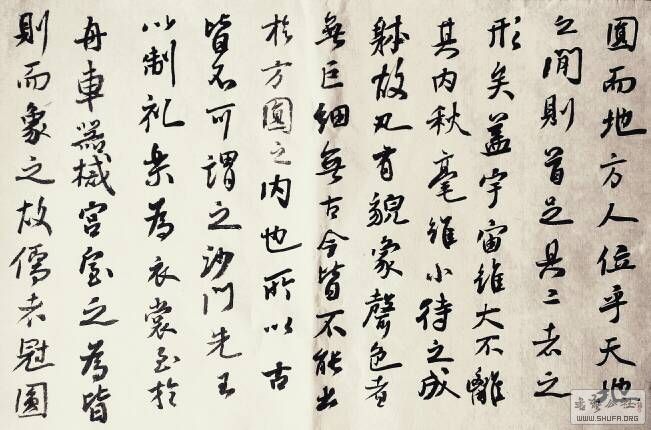 圓而地方人位乎天地
之間則首足具二者之
形矣蓋宇宙雖大不離
其内秋毫雖小待之成
躰故凡有貌象聲色者
無巨細無古今皆不能出
於方圓之内也所以古
皆不可謂之沙門先王
以制礼樂為衣裳至於
舟車器械宮室之為皆
則而象之故儒者冠圓
WWW.SHUFA.ORG